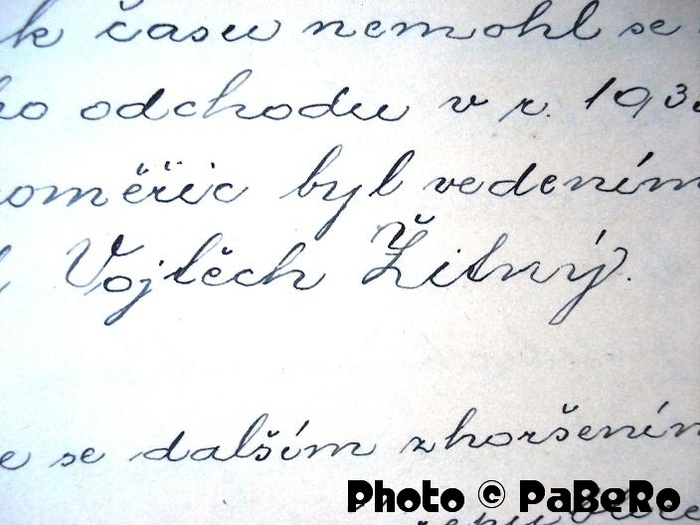 k času nemohl se
ho odchodu v r. 193
oměřic byl vedením
Vojtěch Žitný.
e se dalším zhoršením
Photo © PaBeRo